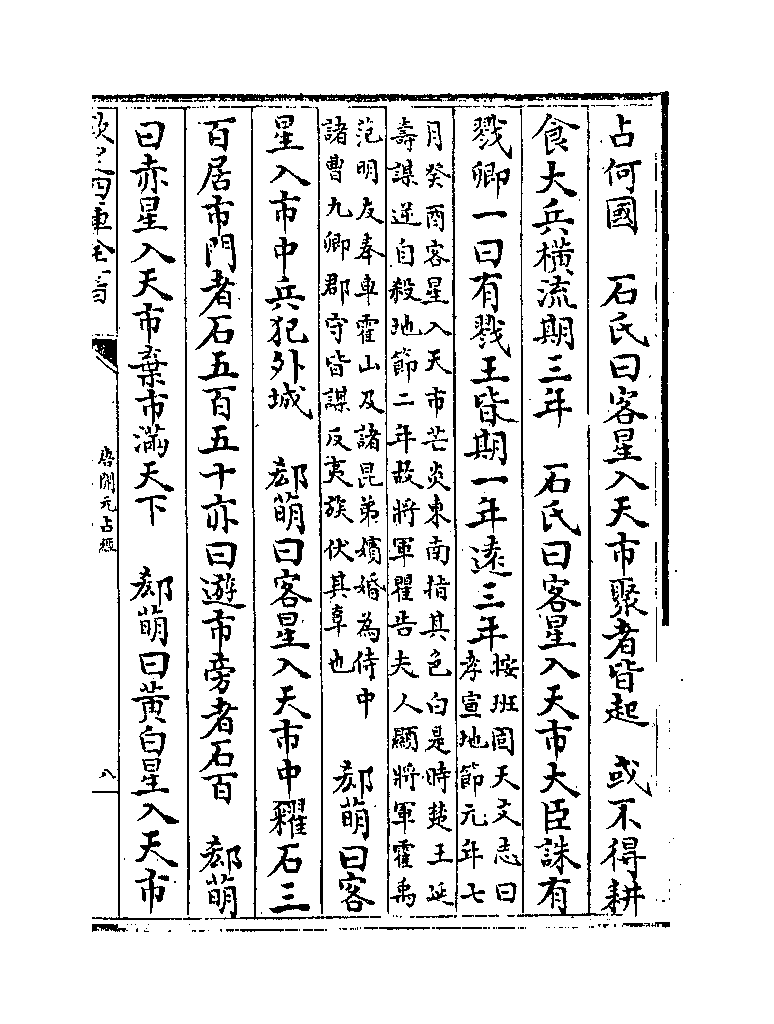 占何國　石氏曰客星入天市聚者皆起　或不得耕
食大兵橫流期三年　石氏曰客星入天市大臣誅有
戮卿一曰有戮王皆期一年遠三年
按班固天文志曰
孝宣地節元年七
月癸酉客星入天市芒炎東南指其色白是時楚王延
壽謀逆自殺地節二年故將軍瞿告夫人顯將軍霍禹
范明友奉車霍山及諸昆弟嬪婚為侍中
諸曹九卿郡守皆謀反夷族伏其辜也
郄萌曰客
星入市中兵犯外城　郄萌曰客星入天市中糴石三
百居市門者石五百五十亦曰遊市旁者石百　郄萌
曰赤星入天市棄市滿天下　郄萌曰黃白星入天市
欽定四庫全書
唐開元占經
八